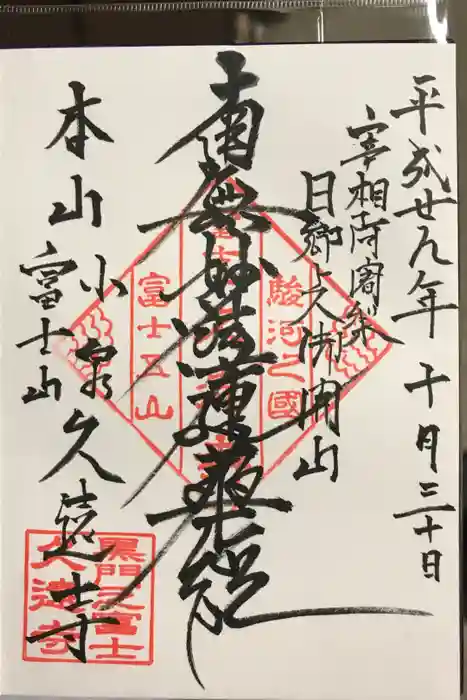 平成廿九年 十月三十日
宰相阿闍梨
日郷上人御開山
南無妙法蓮華経
本山 小泉 久遠寺
富士山
駿河之國
富士五山
黒門之富士
久遠寺